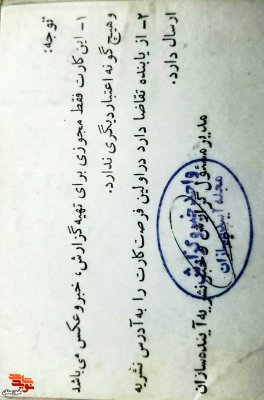 توجه:
۱- این کارت فقط مجوزی برای تهیه گزارش، خبر و عکس می باشد
و هیچ گونه اعتبار دیگری ندارد.
۲- از یابنده تقاضا دارد در اولین فرصت کارت را به آدرس نشریه
ارسال دارد.
مدیر مسئول گزارش و خبر نشریه آینده سازان
واحد خبر و گزارش
مجله آینده سازان